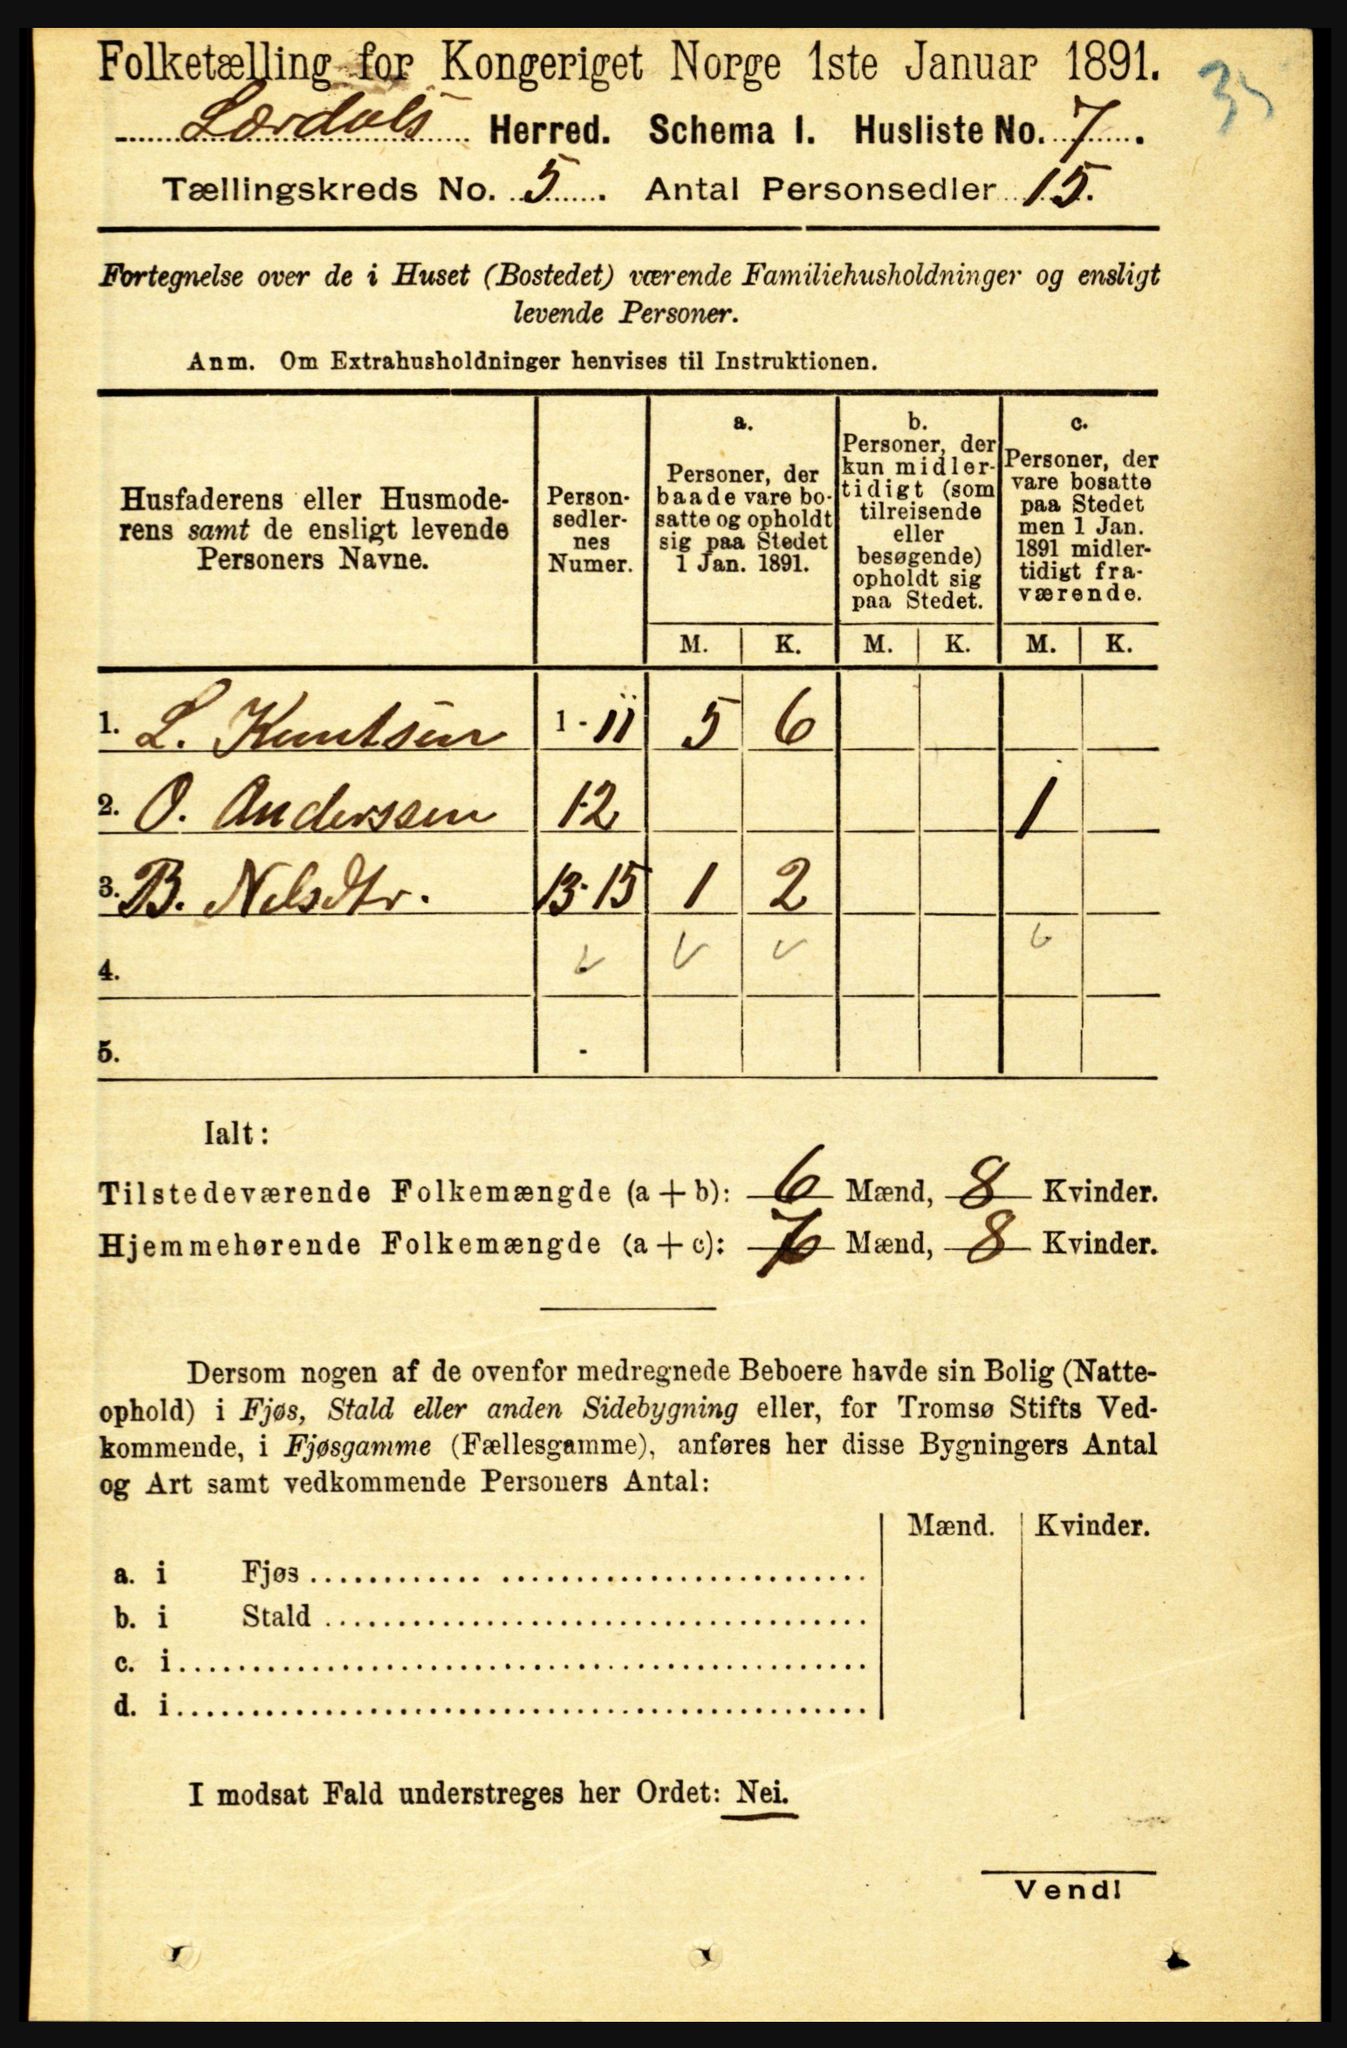 Folketælling for Kongeriget Norge 1ste Januar 1891.
35
Lærdals Herred. Schema I. Husliste No. 7.
Tællingskreds No. 5. Antal Personsedler 15.
Fortegnelse over de i Huset (Bostedet) værende Familiehusholdninger og ensligt
levende Personer.
Anm. Om Extrahusholdninger henvises til Instruktionen.
Husfaderens eller Husmode-
rens samt de ensligt levende
Personers Navne.
Person-
sedler-
nes
Numer.
a.
Personer, der
baade vare bo-
satte og opholdt
sig paa Stedet
1 Jan. 1891.
b.
Personer, der
kun midler-
tidigt (som
tilreisende
eller
besøgende)
opholdt sig
paa Stedet.
c.
Personer, der
vare bosatte
paa Stedet
men 1 Jan.
1891 midler-
tidigt fra-
værende.
M. K. M. K. M. K.
1. L. Knutsen 1-11 5 6
2. O. Anderssen 12 1
3. B. Nelsdtr. 13-15 1 2
4.
5.
Ialt:
Tilstedeværende Folkemængde (a + b): 6 Mænd, 8 Kvinder.
Hjemmehørende Folkemængde (a + c): 7 Mænd, 8 Kvinder.
Dersom nogen af de ovenfor medregnede Beboere havde sin Bolig (Natte-
ophold) i Fjøs, Stald eller anden Sidebygning eller, for Tromsø Stifts Ved-
kommende, i Fjøsgamme (Fællesgamme), anføres her disse Bygningers Antal
og Art samt vedkommende Personers Antal:
Mænd. Kvinder.
a. i Fjøs
b. i Stald
c. i
d. i
I modsat Fald understreges her Ordet: Nei.
Vend!